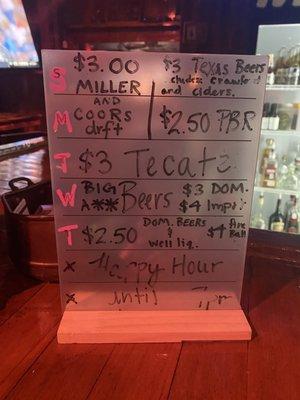 S
$3.00
MILLER
$3 Texas Beers
and ciders.
M
AND
COORS
drft
$2.50 PBR
T
$3 Tecate
W
BIG
A** Beers
$3 DOM.
$4 Impt.
T
$2.50
DOM. BEERS
&
well liq.
$4 Fire
Ball
x Happy Hour
x until 7pm